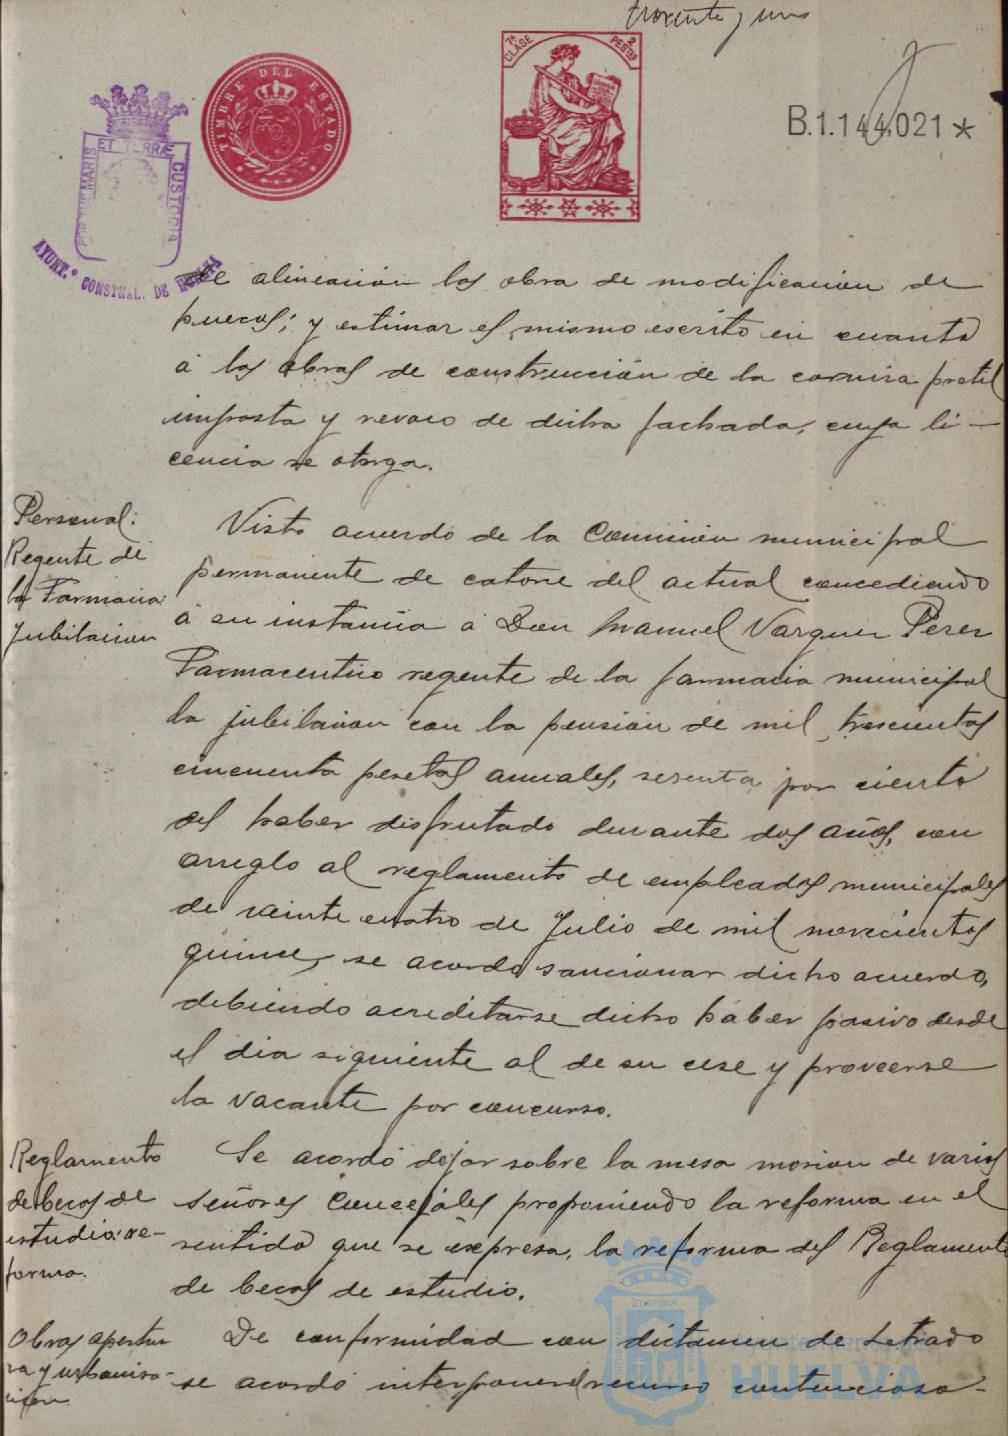 noventa y uno
TIMBRE DEL ESTADO
7ª CLASE
2 PESTAS
B.1.144.021 *
MARIS ET TERRÆ CUSTODIA
AYUNT.º CONSTNAL. DE HUELVA
de alineacion las obra de modificacion de
huecos; y estimar el mismo escrito en cuanto
á las obras de construcción de la cornisa pretil
imposta y revoco de dicha fachada, cuya li-
cencia se otorga.
Personal:
Regente de
la Farmacia:
Jubilacion
Visto acuerdo de la Comision municipal
permanente de catorce del actual concediendo
á su instancia á Don Manuel Vazquez Perez
Farmaceutico regente de la farmacia municipal
la jubilacion con la pension de mil trescientas
cincuenta pesetas anuales, sesenta por ciento
del haber disfrutado durante dos años, con
arreglo al reglamento de empleados municipales
de veinte cuatro de Julio de mil novecientos
quince, se acordo sancionar dicho acuerdo,
debiendo acreditarse dicho haber pasivo desde
el dia siguiente al de su cese y proveerse
la vacante por concurso.
Reglamento
de becas de
estudio: re-
forma.
Se acordó dejar sobre la mesa mocion de varios
señores Concejales proponiendo la reforma en el
sentido que se expresa, la reforma del Reglamento
de becas de estudio.
Obras apertu
ra y urbaniza-
cion
De conformidad con dictamen de Letrado
se acordó interponer recurso contencioso-
HUELVA